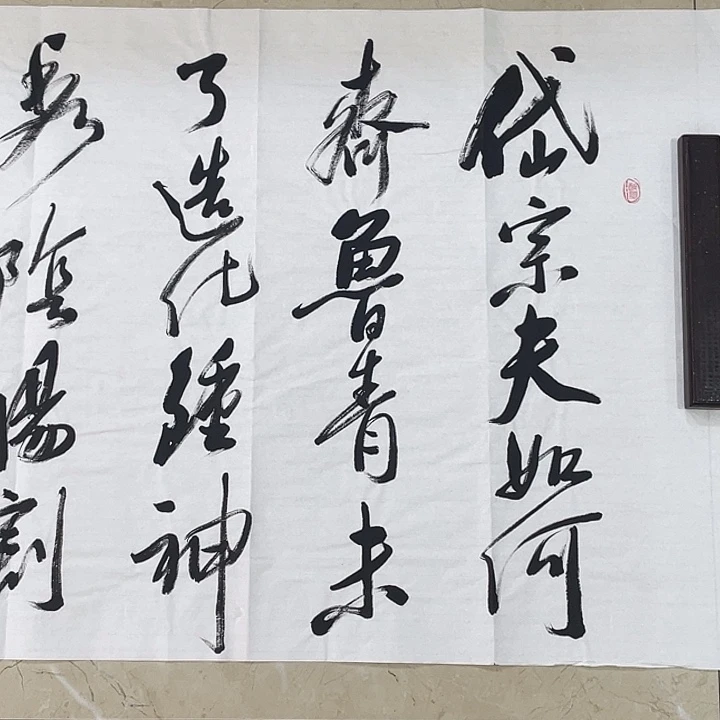 岱宗夫如何
齊魯青未
了造化鍾神
秀陰陽割